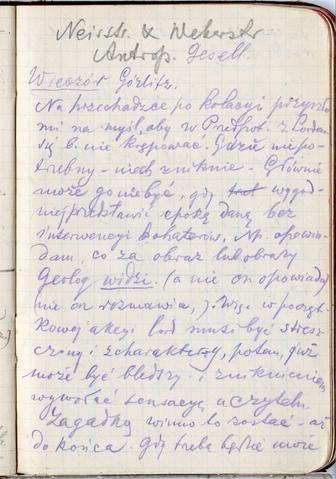 Neisstr. & Weberstr
Antrop. Gesell.
Wieczór Görlitz.
Na przechadzce po kolacyi przyszło
mi na myśl, aby w Przedpot. z Lordem
się b. nie krępować. Gdzie niepo-
trzebny - niech zniknie. Głównie
może go nie być, gdy wygod-
niej przedstawić epokę daną bez
interwencyi bohaterów. Np. opowia-
dam, co za obraz lub obrazy
Geolog widzi. (a nie on opowiada)
(nie on rozmawia,). Więc w począt-
kowej akcyi lord musi być stresz-
czony i z charakteru, potem, już
może być bledszy i zniknieniem
wywołać sensacyę u czyteln.
Zagadką winno to zostać - aż
do końca. Gdy trzeba będzie może